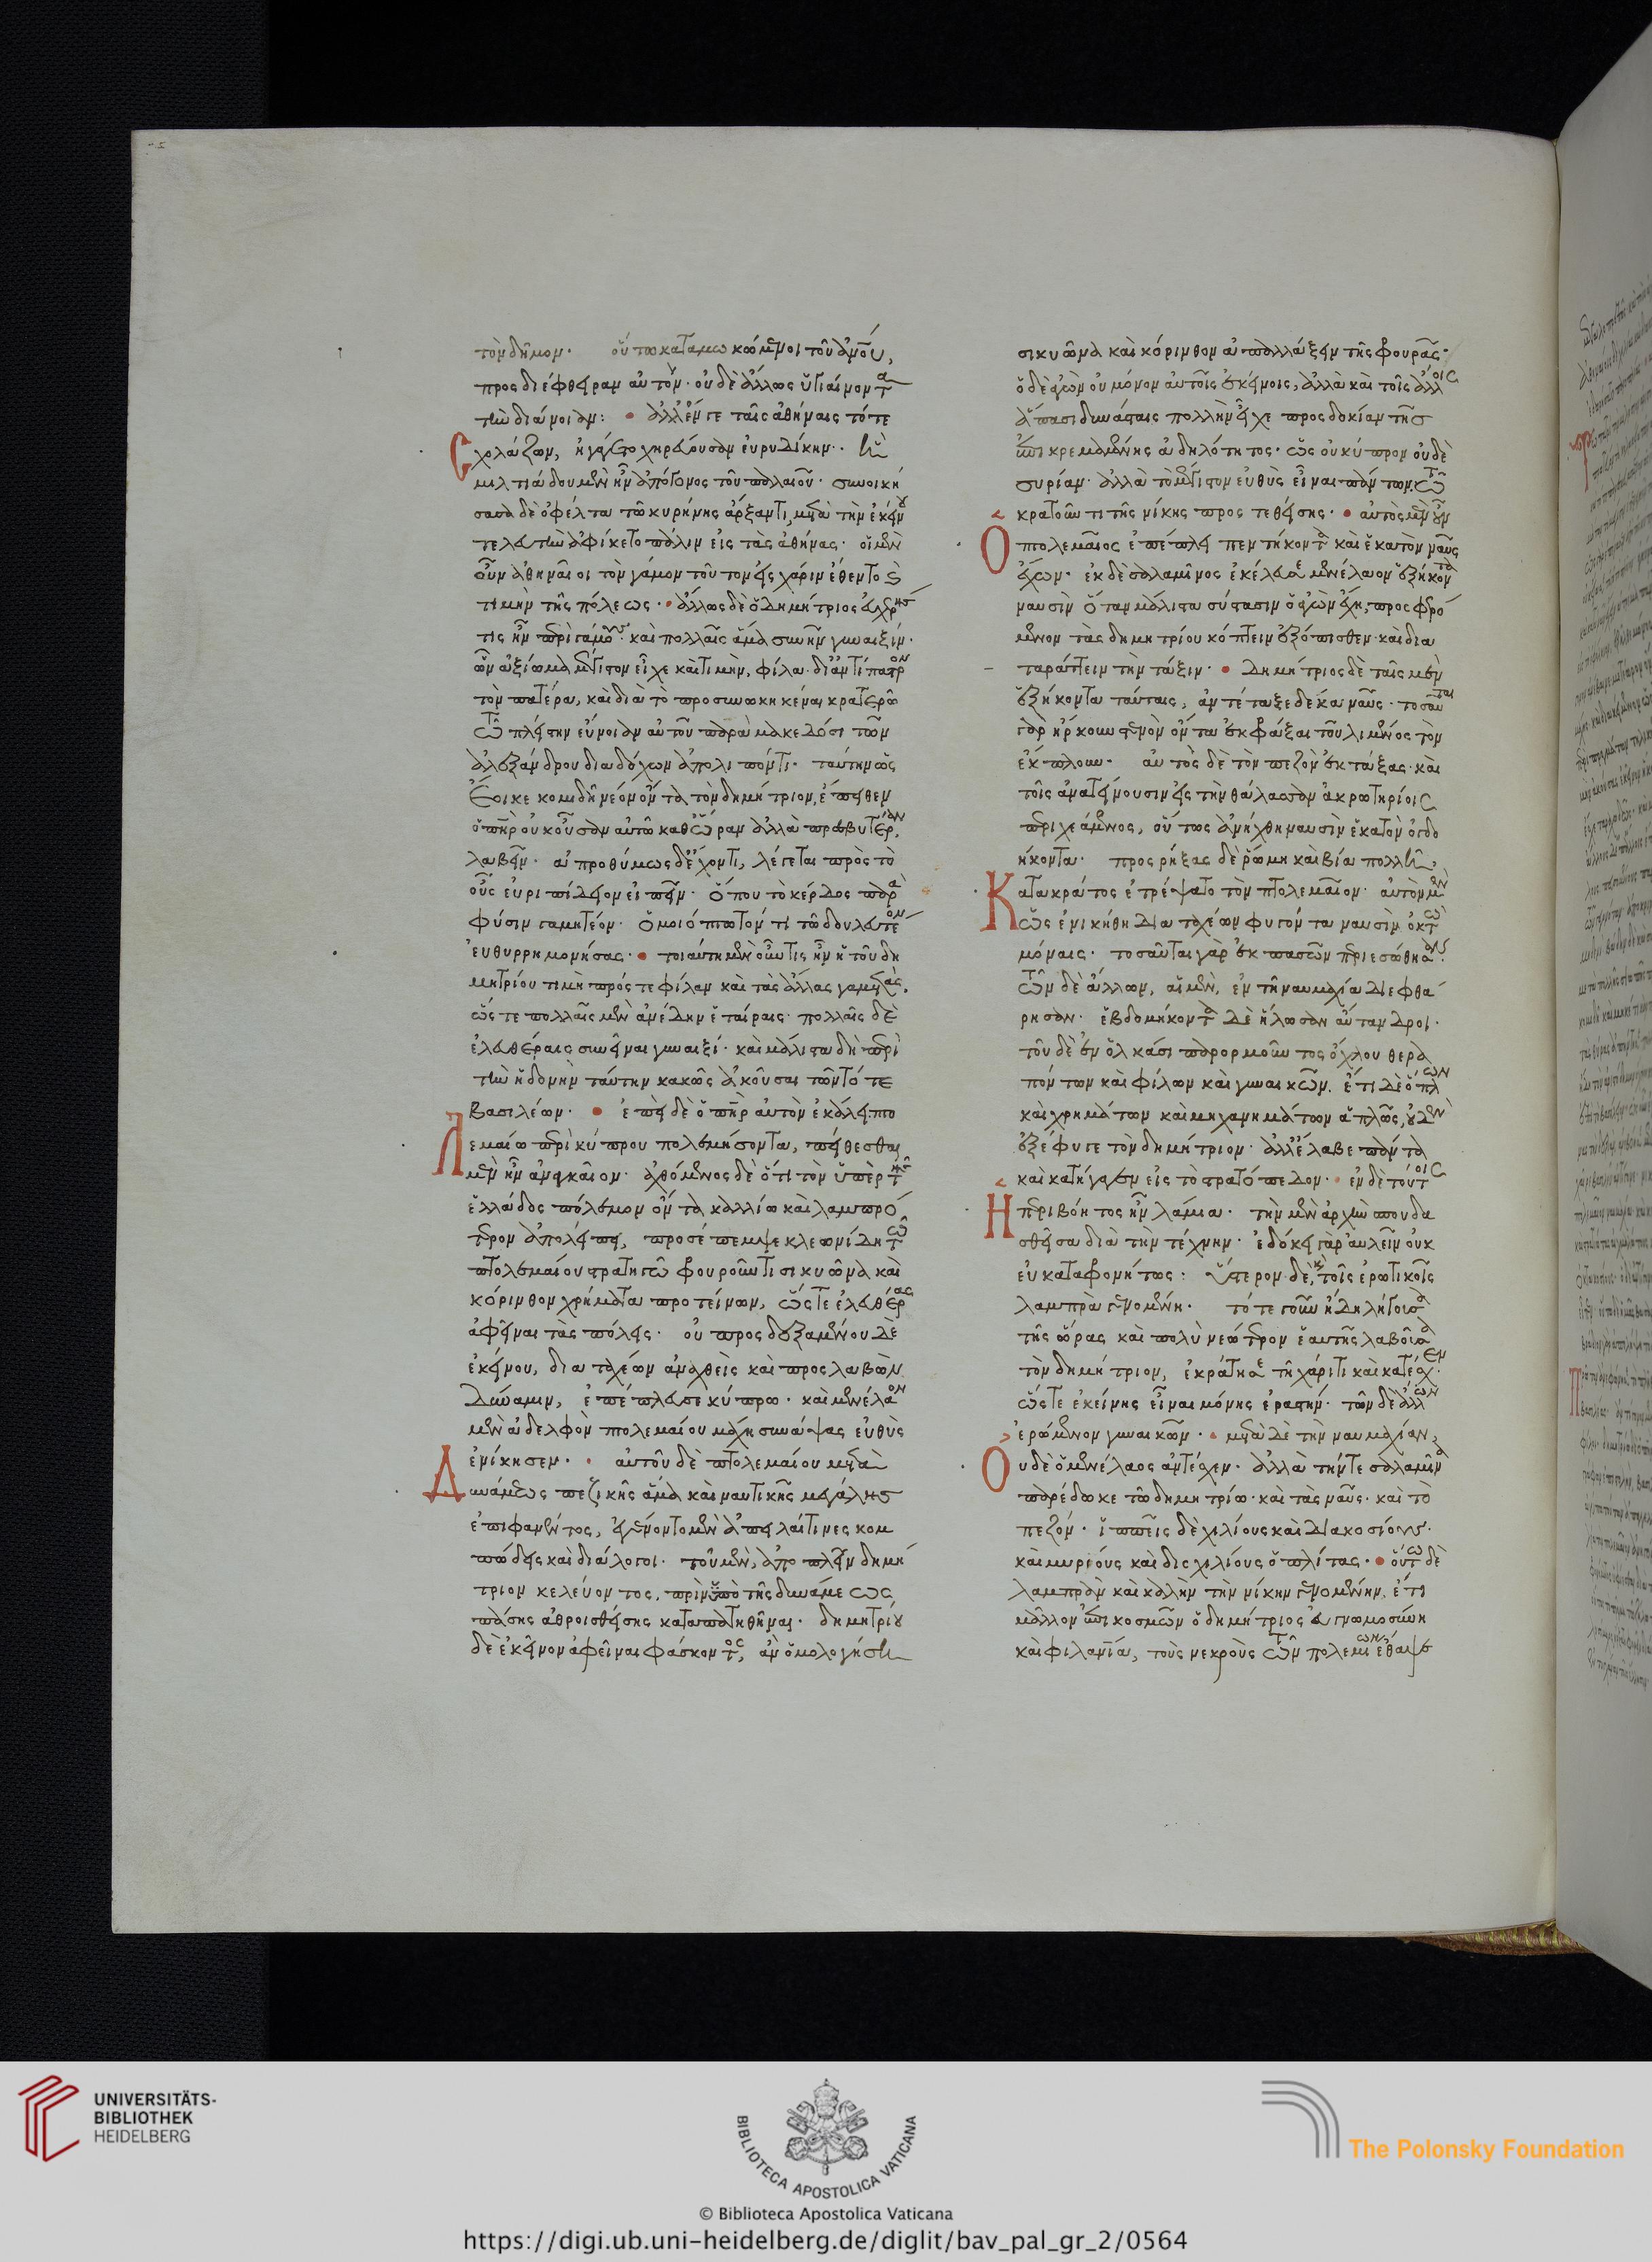 τὸν δῆμον· οὕτω καταμωκώμενοι τοῦ ἀνου,
προσδιέφθειραν αὐτόν· οὐδὲ ἄλλως ὑγιαίνοντα
τὴν διάνοιαν: • ἀλλ' ἔν γε ταῖς ἀθήναις τότε
Σχολάζων, ἠγάγετο χηρεύουσαν εὐρυδίκην· ἣ
μιλτιάδου μὲν ἦν ἀπόγονος τοῦ παλαιοῦ· συνοική
σασα δὲ ὀφέλτα τῶ κυρήνης ἄρξαντι, μετὰ τὴν ἐκείνου
τελευτὴν ἀφίκετο πάλιν εἰς τὰς ἀθήνας· οἱ μὲν
οὖν ἀθηναῖοι τὸν γάμον τοῦτον εἰς χάριν ἔθεντο καὶ
τιμὴν τῆς πόλεως· • ἄλλως δὲ ὁ δημήτριος εὐχερής
τις ἦν περὶ γάμους· καὶ πολλαῖς ἅμα συνῆν γυναιξίν·
ὧν ἀξίωμα μέγιστον εἶχε καὶ τιμὴν, φίλα· δι' ἀντίπατρον
τὸν πατέρα, καὶ διὰ τὸ προσυνωκηκέναι κρατερῶ
τῶ πλείστην εὔνοιαν αὐτοῦ παρὰ μακεδόσι τῶν
ἀλεξάνδρου διαδόχων ἀπολιπόντι· ταύτην ὡς
ἔοικε κομιδῆ νέον ὄντα τὸν δημήτριον, ἔπειθεν
ὁ πηρ οὐκ οὖσαν αὐτῶ καθ' ὥραν ἀλλὰ πρεσβυτέραν
λαβεῖν· ἀπροθύμως δ' ἔχοντι, λέγεται πρὸς τὸ
οὖς εὐριπίδειον εἰπεῖν· ὅπου τὸ κέρδος παρὰ
φύσιν γαμητέον· ὁμοιόπτωτόν τι τῶ δουλευτέον
εὐθυρρημονήσας· • τοιαύτη μὲν οὖν τις ἦν ἡ τοῦ δη
μητρίου τιμὴ πρός τε φίλαν καὶ τὰς ἄλλας γαμετάς·
ὥστε πολλαῖς μὲν ἀνέδην ἑταίραις· πολλαῖς δὲ
ἐλευθέραις συνεῖναι γυναιξί· καὶ μάλιστα δὴ περὶ
τὴν ἡδονὴν ταύτην κακῶς ἀκοῦσαι τῶν τότε
βασιλέων· • ἐπεὶ δὲ ὁ πηρ αὐτὸν ἐκάλει πτο
Λεμαίω περὶ κύπρου πολεμήσοντα, πείθεσθαι
μὲν ἦν ἀναγκαῖον· ἀχθόμενος δὲ ὅτι τὸν ὑπὲρ τῆς
ἑλλάδος πόλεμον ὄντα καλλίω καὶ λαμπρό
τερον ἀπολείπει, προσέπεμψε κλεωνίδη τῶ
πτολεμαίου στρατηγῶ φρουροῦντι σικυῶνα καὶ
κόρινθον χρήματα προτείνων, ὥστε ἐλευθέρας
ἀφεῖναι τὰς πόλεις· οὐ προσδεξαμένου δὲ
ἐκείνου, δια ταχέων ἀναχθεὶς καὶ προσλαβὼν
δύναμιν, ἐπέπλευσε κύπρω· καὶ μενέλαον
μὲν ἀδελφὸν πτολεμαίου μάχη συνάψας εὐθὺς
ἐνίκησεν· • αὐτοῦ δὲ πτολεμαίου μετὰ
Δυνάμεως πεζικῆς ἅμα καὶ ναυτικῆς μεγάλης
ἐπιφανέντος, ἐγένοντο μὲν ἀπειλαί τινες κομ
πώδεις καὶ διάλογοι· τοῦ μὲν, ἀποπλεῖν δημή
τριον κελεύοντος, πρὶν ὑπὸ τῆς δυνάμεως
πάσης ἀθροισθείσης καταπατηθῆναι· δημητρίου
δὲ ἐκεῖνον ἀφεῖναι φάσκοντος, ἂν ὁμολογήση
σικυῶνα καὶ κόρινθον ἀπαλλάξειν τῆς φρουρᾶς·
ὁ δὲ ἀγὼν οὐ μόνον αὐτοῖς ἐκείνοις, ἀλλὰ καὶ τοῖς ἄλλοις
ἅπασι δυνάσταις πολλὴν εἶχε προσδοκίαν τῆς
ἐπικρεμαμένης ἀδηλότητος· ὡς οὐ κύπρον οὐδὲ
συρίαν· ἀλλὰ τὸ μέγιστον εὐθὺς εἶναι πάντων τῶ
κρατοῦντι τῆς νίκης προστεθείσης· • αὐτὸς μὲν οὖν
Ὁ πτολεμαῖος ἐπέπλει πεντήκοντα καὶ ἑκατὸν ναῦς
ἔχων· ἐκ δὲ σαλαμῖνος ἐκέλευσε μενέλαον ἑξήκοντα
ναυσὶν ὅταν μάλιστα σύστασιν ὁ ἀγὼν ἔχη, προσφερό
μενον τὰς δημητρίου κόπτειν ἐξόπισθεν· καὶ δια
ταράττειν τὴν τάξιν· • δημήτριος δὲ ταῖς μὲν
ἑξήκοντα ταύταις, ἀντέταξε δέκα ναῦς· τοσαῦται
γὰρ ἤρκουν στενὸν ὄντα ἐκφράξαι τοῦ λιμένος τὸν
ἔκπλουν· αὐτὸς δὲ τὸν πεζὸν ἐκτάξας· καὶ
τοῖς ἀνατείνουσιν εἰς τὴν θάλασσαν ἀκρωτηρίοις
περιχεάμενος, οὕτως ἀνήχθη ναυσὶν ἑκατὸν ὀγδο
ήκοντα· προσρήξας δὲ ῥώμη καὶ βία πολλῆ,
Κατακράτος ἐτρέψατο τὸν πτολεμαῖον· αὐτὸν μὲν
ὡς ἐνικήθη δια ταχέων φυγόντα ναυσὶν ὀκτὼ
μόναις· τοσαῦται γὰρ ἐκ πασῶν περιεσώθησαν·
τῶν δὲ ἄλλων, αἱ μὲν, ἐν τῆ ναυμαχία διεφθά
ρησαν· ἑβδομήκοντα δὲ ἥλωσαν αὔτανδροι·
τοῦ δὲ ἐν ὁλκάσι παρορμοῦντος ὄχλου θερα
πόντων καὶ φίλων καὶ γυναικῶν· ἔτι δὲ ὅπλων
καὶ χρημάτων καὶ μηχανημάτων ἁπλῶς, οὐδὲν
ἐξέφυγε τὸν δημήτριον· ἀλλ' ἔλαβε πάντα
καὶ κατήγαγεν εἰς τὸ στρατόπεδον· • ἐν δὲ τούτοις
Ἡ περιβόητος ἦν λάμια· τὴν μὲν ἀρχὴν σπουδα
σθεῖσα διὰ τὴν τέχνην· ἐδόκει γὰρ αὐλεῖν οὐκ
εὐκαταφρονήτως: ὕστερον δὲ, καὶ τοῖς ἐρωτικοῖς
λαμπρὰ γενομένη· τότε γοῦν ἤδη λήγουσα
τῆς ὥρας καὶ πολὺ νεώτερον ἑαυτῆς λαβοῦσα
τὸν δημήτριον, ἐκράτησε τῆ χάριτι καὶ κατέσχεν·
ὥστε ἐκείνης εἶναι μόνης ἐραστήν· τῶν δὲ ἄλλων
ἐρώμενον γυναικῶν· • μετὰ δὲ τὴν ναυμαχίαν,
Οὐδὲ ὁ μενέλαος ἀντέσχεν· ἀλλὰ τήν τε σαλαμῖνα
παρέδωκε τῶ δημητρίω· καὶ τὰς ναῦς· καὶ τὸ
πεζόν· ἱππεῖς δὲ χιλίους καὶ διακοσίους·
καὶ μυρίους καὶ δισχιλίους ὁπλίτας· • οὕτω δὲ
λαμπρὰν καὶ καλὴν τὴν νίκην γενομένην, ἔτι
μᾶλλον ἐπικοσμῶν ὁ δημήτριος εὐγνωμοσύνη
καὶ φιλανία, τοὺς νεκροὺς τῶν πολεμίων ἔθαψε
UNIVERSITÄTS-
BIBLIOTHEK
HEIDELBERG
BIBLIOTECA APOSTOLICA VATICANA
The Polonsky Foundation
© Biblioteca Apostolica Vaticana
https://digi.ub.uni-heidelberg.de/diglit/bav_pal_gr_2/0564